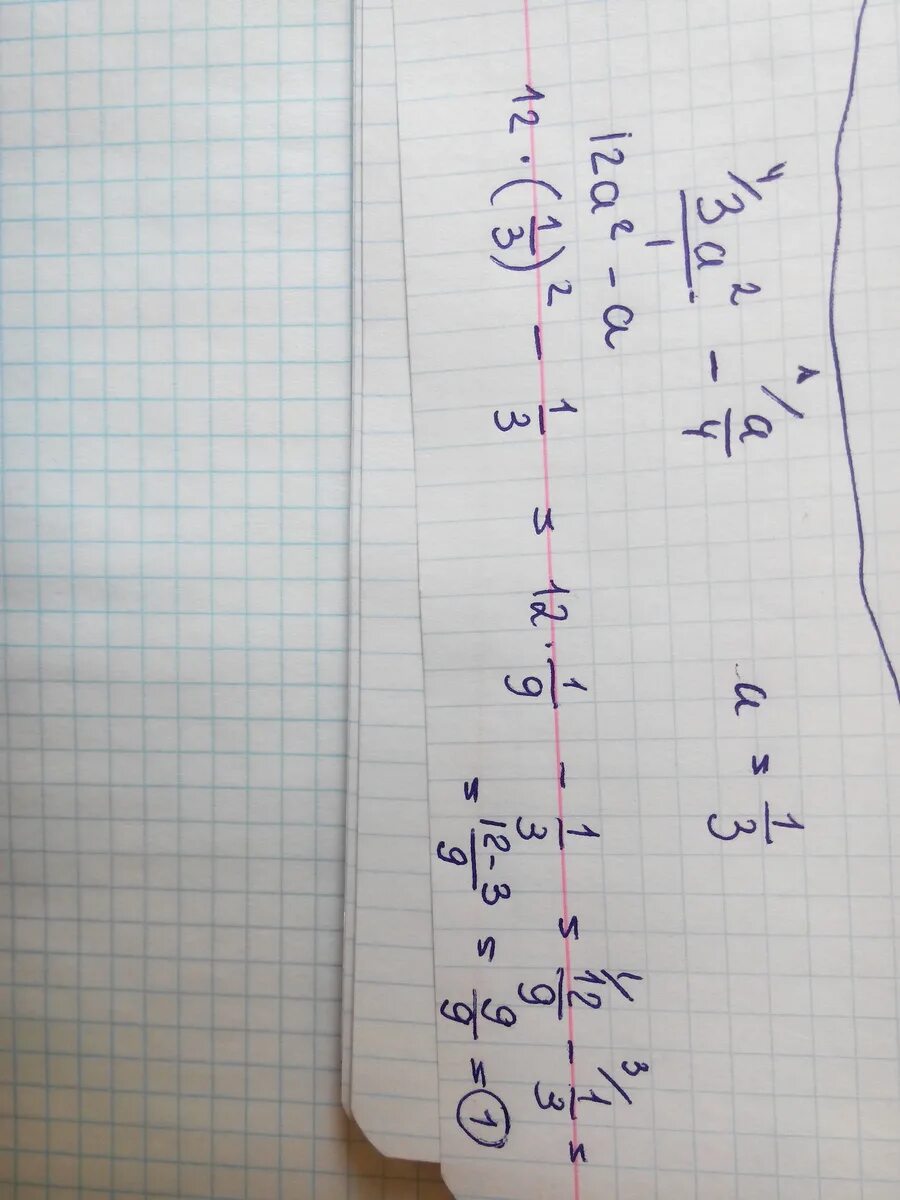 ⁴/3a²/1 - ¹/a/4 a = 1/3
12a² - a
12 · (1/3)² - 1/3 = 12 · 1/9 - 1/3 = ¹/12/9 - ³/1/3 =
= 12-3/9 = 9/9 = 1